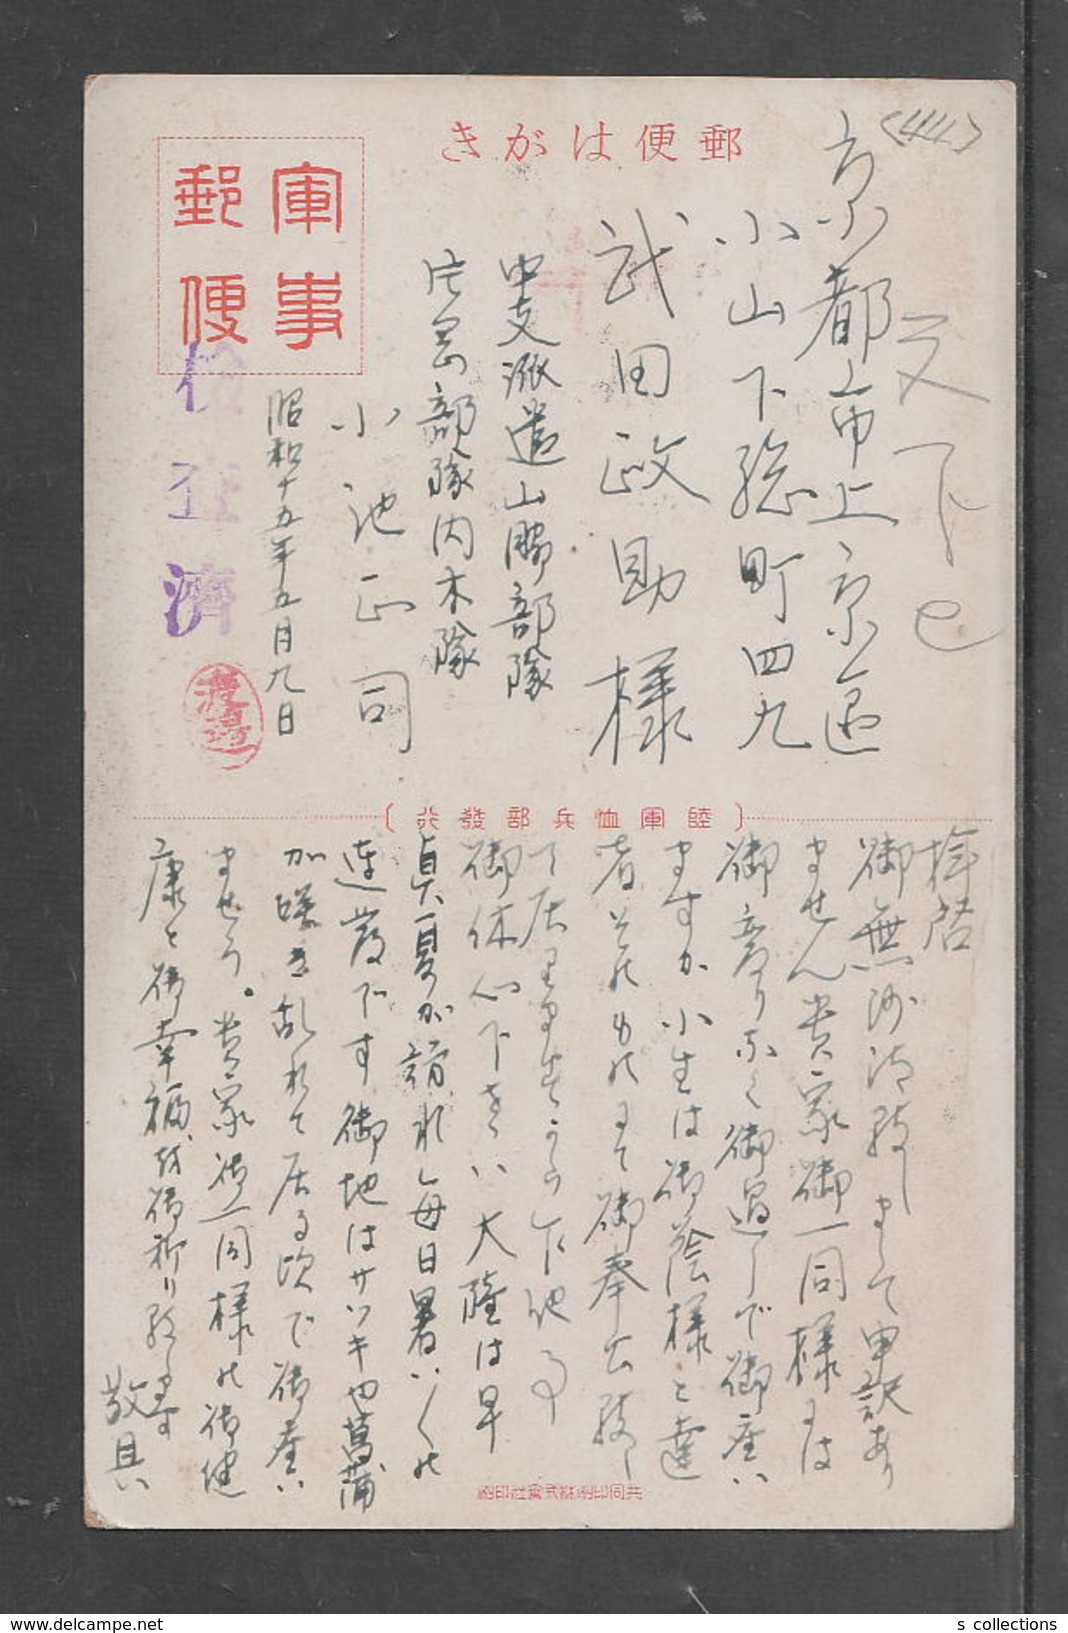 郵便はがき
軍事
郵便
検査済
渡邉
京都市上京區
小山下総町四九
武田政助様
中支派遣山脇部隊
片岡部隊内木隊
小池正司
昭和十五年五月九日
陸軍恤兵部發行
拝啓
御無沙汰致しまして申訳あり
ません貴家御一同様には
御変りなく御過しで御座い
ますか小生は御蔭様と達
者そのものにて御奉公致し
て居りますから乍他事
御休心下さい大陸は早
真夏が訪れ毎日暑い〱の
連發です御地はサツキや菖蒲
が咲き乱れて居る頃で御座い
ませう。貴家御一同様の御健
康と御幸福を御祈り致します
敬具
共同印刷株式會社印刷
s collections